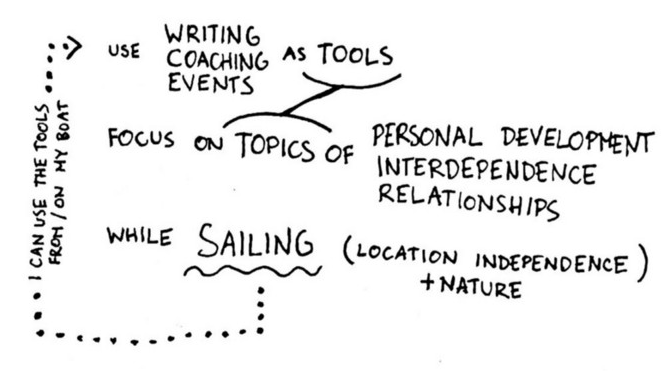 USE WRITING COACHING EVENTS AS TOOLS
FOCUS ON TOPICS OF PERSONAL DEVELOPMENT INTERDEPENDENCE RELATIONSHIPS
WHILE SAILING (LOCATION INDEPENDENCE)
+NATURE
I CAN USE THE TOOLS
FROM/ON MY BOAT